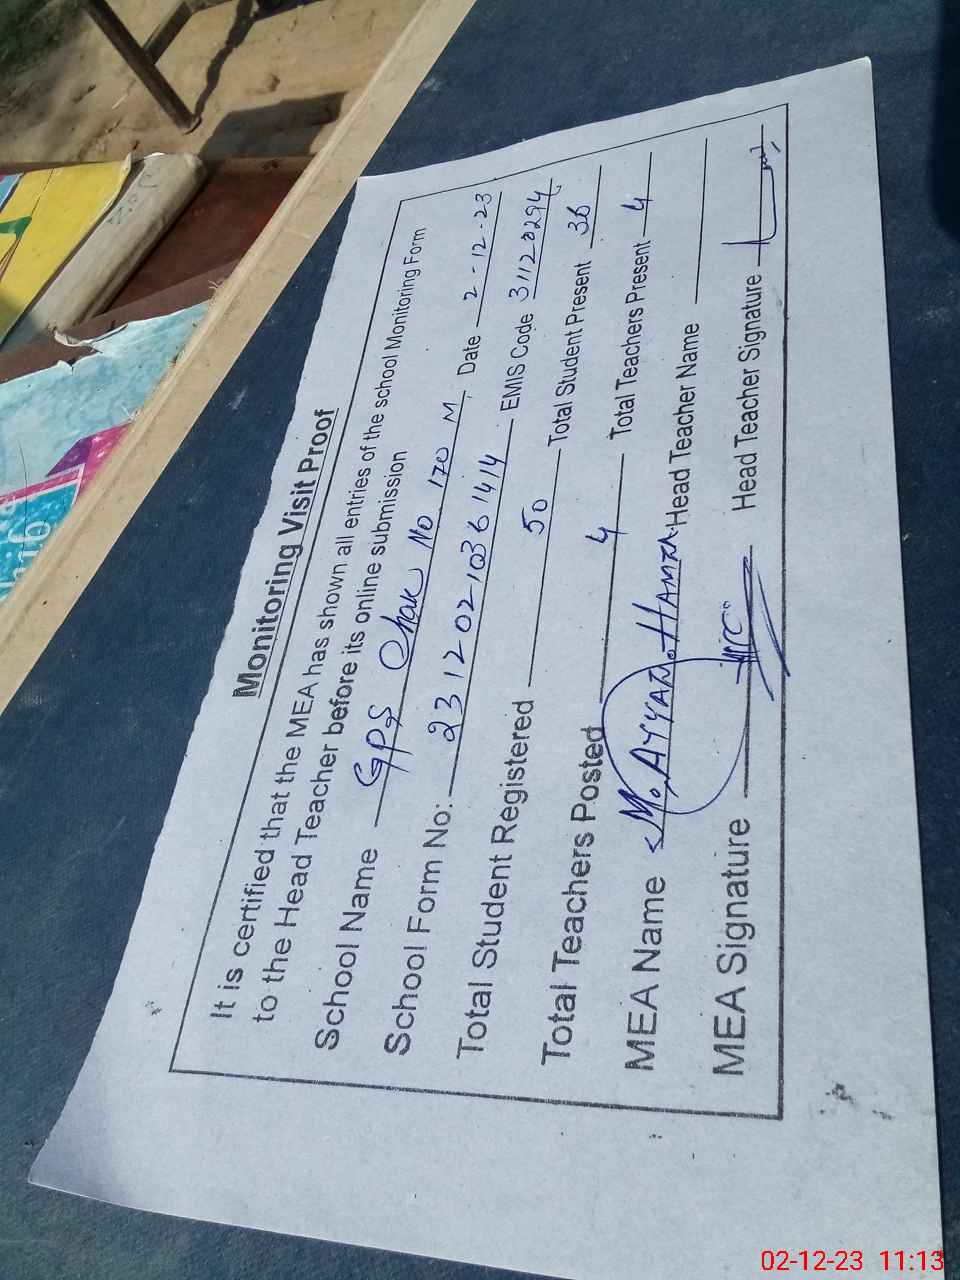 Monitoring Visit Proof
It is certified that the MEA has shown all entries of the school Monitoring Form
to the Head Teacher before its online submission
School Name GPS Chak No 170 M Date 2-12-23
School Form No: 231202-10361414 EMIS Code 31120294
Total Student Registered 50 Total Student Present 36
Total Teachers Posted 4 Total Teachers Present 4
MEA Name M. AYYAN. HAMZA Head Teacher Name
MEA Signature Head Teacher Signature
02-12-23 11:13